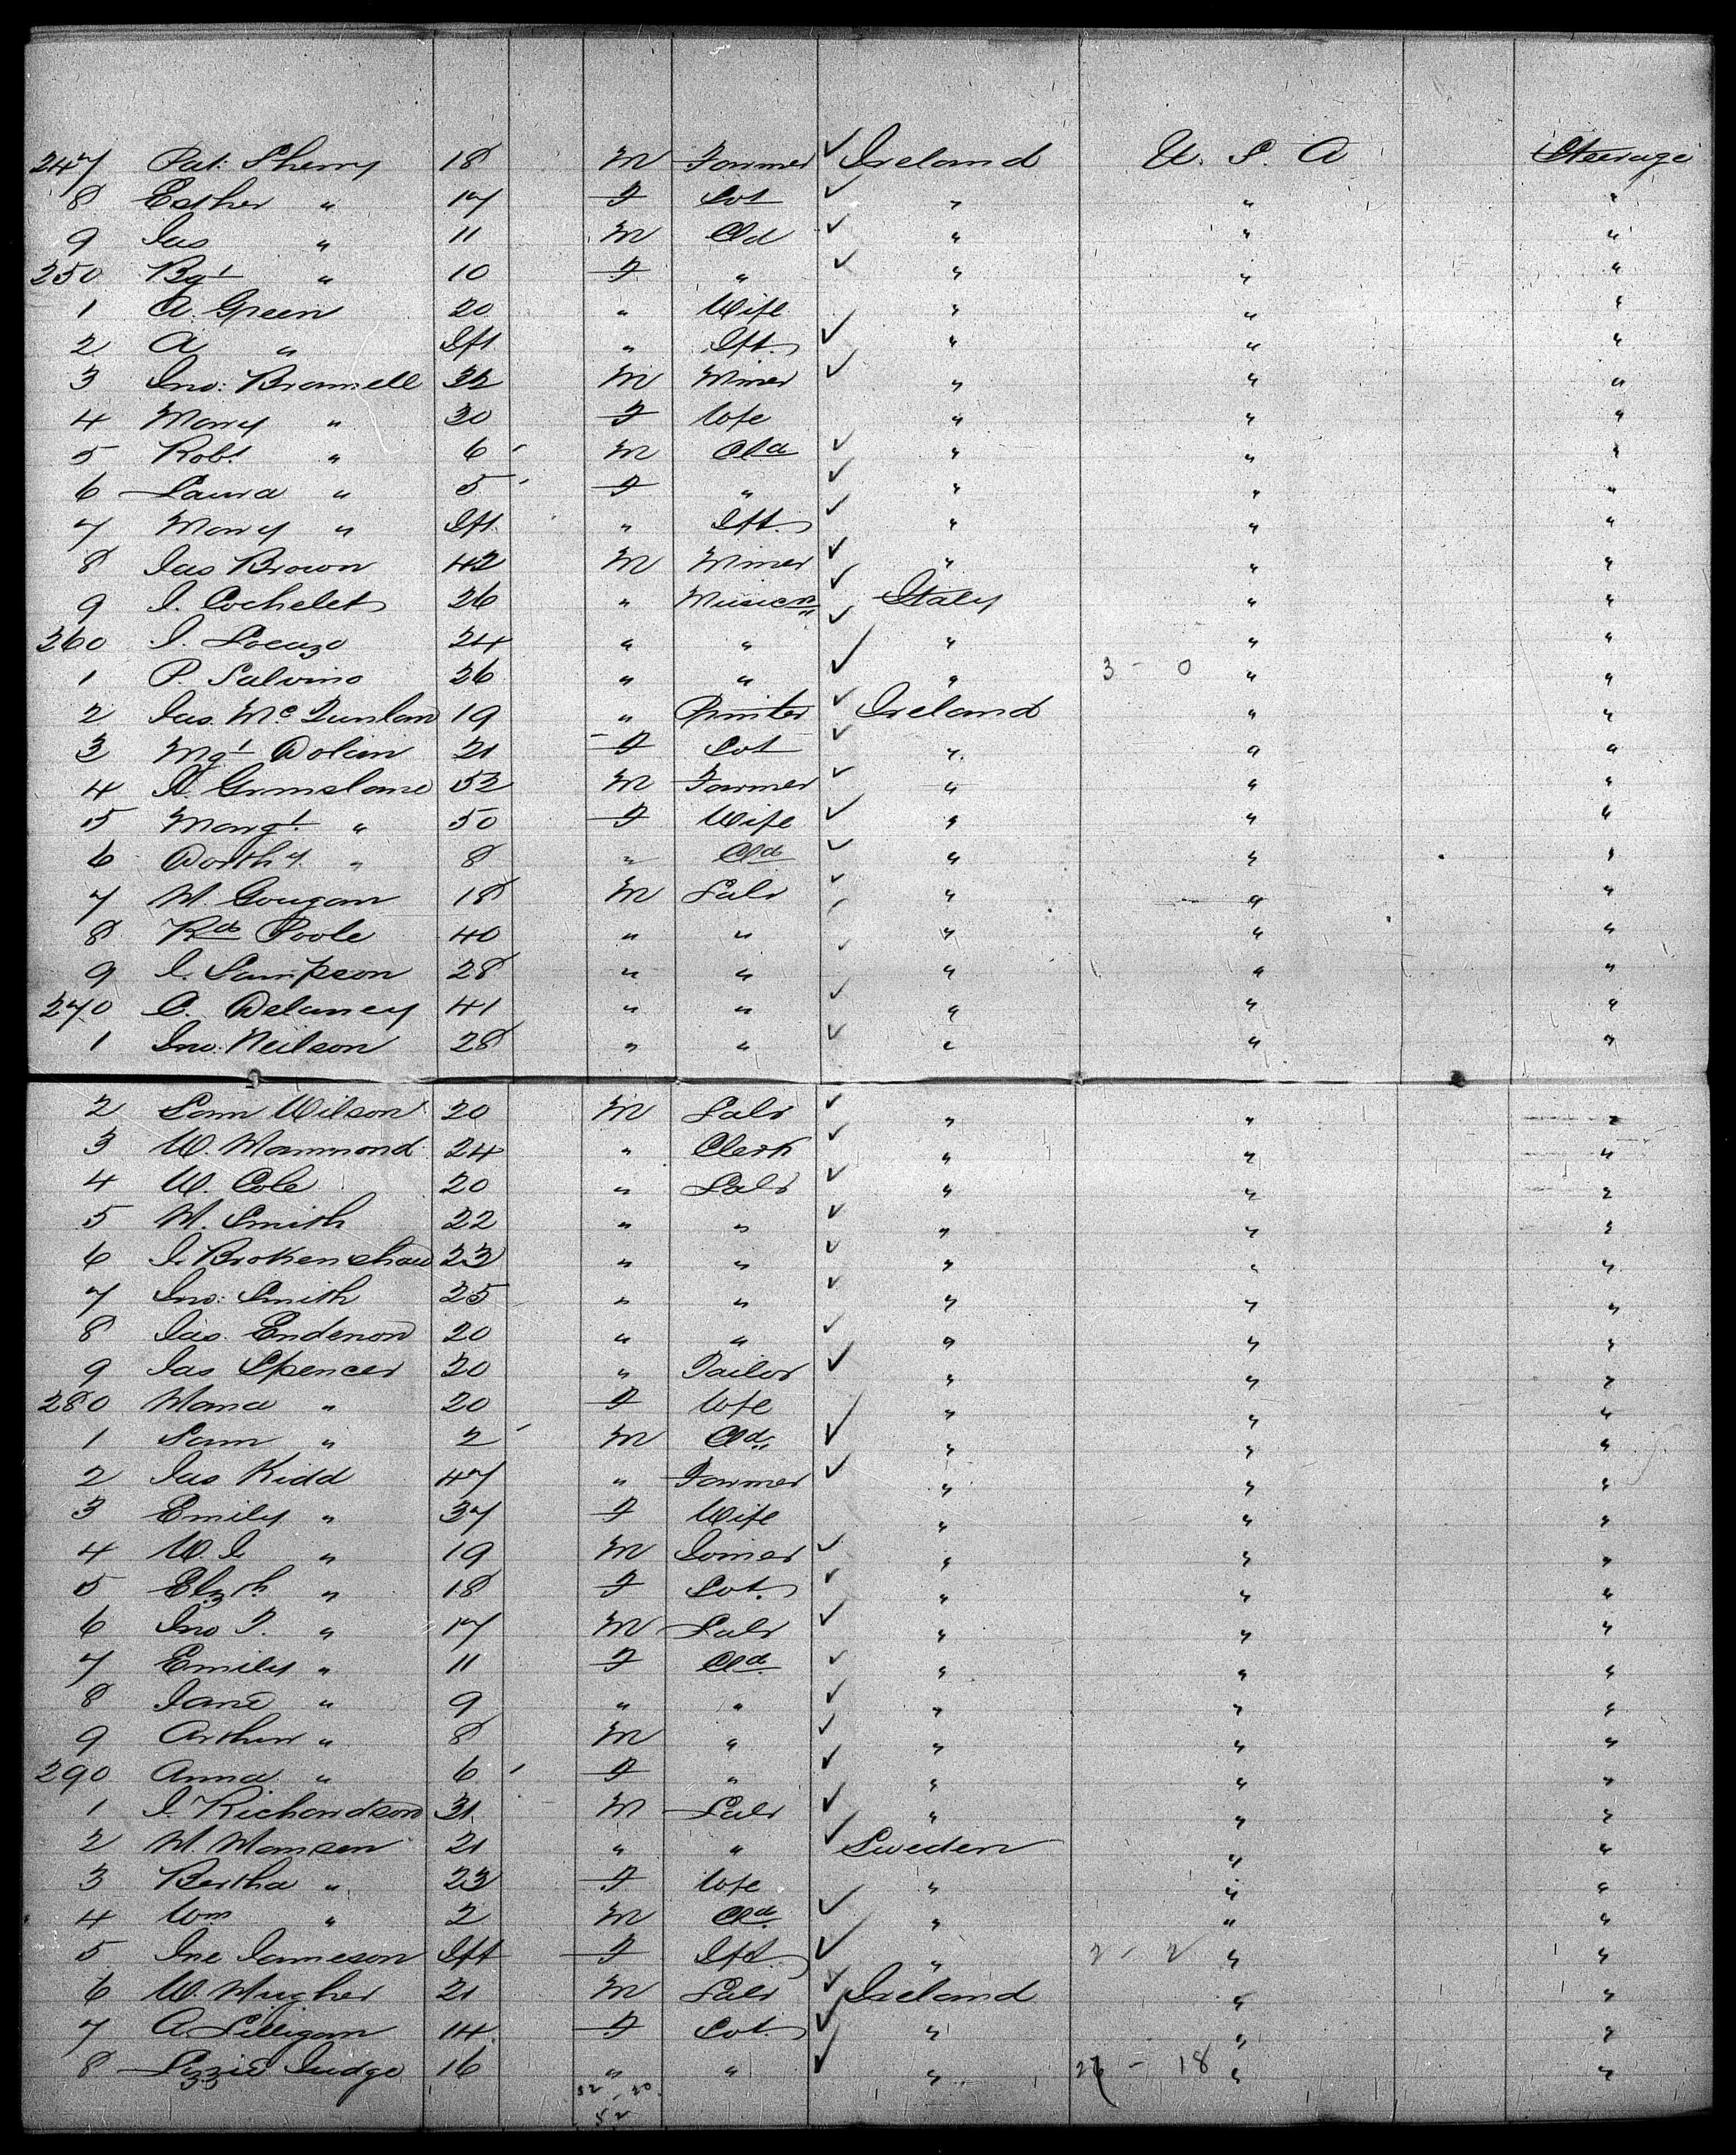 247 Pat: Sherry 18 M Farmer ✓ Ireland U. S. A Steerage
8 Esther " 17 F Svt ✓ " " "
9 Jas " 11 M Cld ✓ " " "
250 Bgt " 10 F " ✓ " " "
1 A. Green 20 " Wife " " "
2 A " Ift " Ift. ✓ " " "
3 Jno: Bramell 32 M Miner ✓ " " "
4 Mary " 30 F Wfe " " "
5 Robt " 6 M Cld ✓ " " "
6 Laura " 5 F " ✓ " " "
7 Mary " Ift. " Ift. ✓ " " "
8 Jas Brown 42 M Miner ✓ " " "
9 J. Cochelet 26 " Musicn ✓ Italy " "
260 J. Locuzo 24 " " ✓ " " "
1 P. Salvino 26 " " ✓ " 3 - 0 " "
2 Jas. Mc Qunlan 19 " Printer ✓ Ireland " "
3 Mgt Dolan 21 F Svt ✓ " " "
4 Grimslane 52 M Farmer ✓ " " "
5 Margt. " 50 F Wife ✓ " " "
6 Dorthy. " 8 " Cld ✓ " " "
7 W. Gougan 18 M Labr ✓ " " "
8 Rd Poole 40 " " " " "
9 J. Sampson 28 " " ✓ " " "
270 C. Delaney 41 " " ✓ " " "
1 Jno. Neilson 28 " " ✓ " " "
2 Sam Wilson 20 M Labr ✓ " " "
3 W. Hammond 24 " Clerk ✓ " " "
4 W. Cole 20 " Labr ✓ " " "
5 W. Smith 22 " " ✓ " " "
6 J. Brokenshaw 23 " " ✓ " " "
7 Jno: Smith 25 " " ✓ " " "
8 Jas. Endenon 20 " " ✓ " " "
9 Jas Spencer 20 " Tailor ✓ " " "
280 Hana " 20 F Wfe " " "
1 Sam " 2 M Cld ✓ " " "
2 Jas Kidd 47 " Farmer ✓ " " "
3 Emily " 37 F Wife " " "
4 W. J. " 19 M Joiner ✓ " " "
5 Elzth. " 18 F Svt. ✓ " " "
6 Jno T. " 17 M Labr ✓ " " "
7 Emily " 11 F Cld ✓ " " "
8 Jane " 9 " " ✓ " " "
9 Arthur " 8 M " ✓ " " "
290 Anna " 6 F " ✓ " " "
1 J. Richardson 31 M Labr ✓ " " "
2 H. Hansen 21 " " ✓ Sweden " "
3 Bertha " 23 F Wfe " " "
4 Wm " 2 M Cld ✓ " " "
5 Ine Jameson Ift F Ift. ✓ " 2 - 2 " "
6 W. Hugher 21 M Labr ✓ Ireland " "
7 A. Gilligan 14 F Svt. ✓ " " "
8 Lizzie Judge 16 " " ✓ " - 18 " "
32 . 20
52